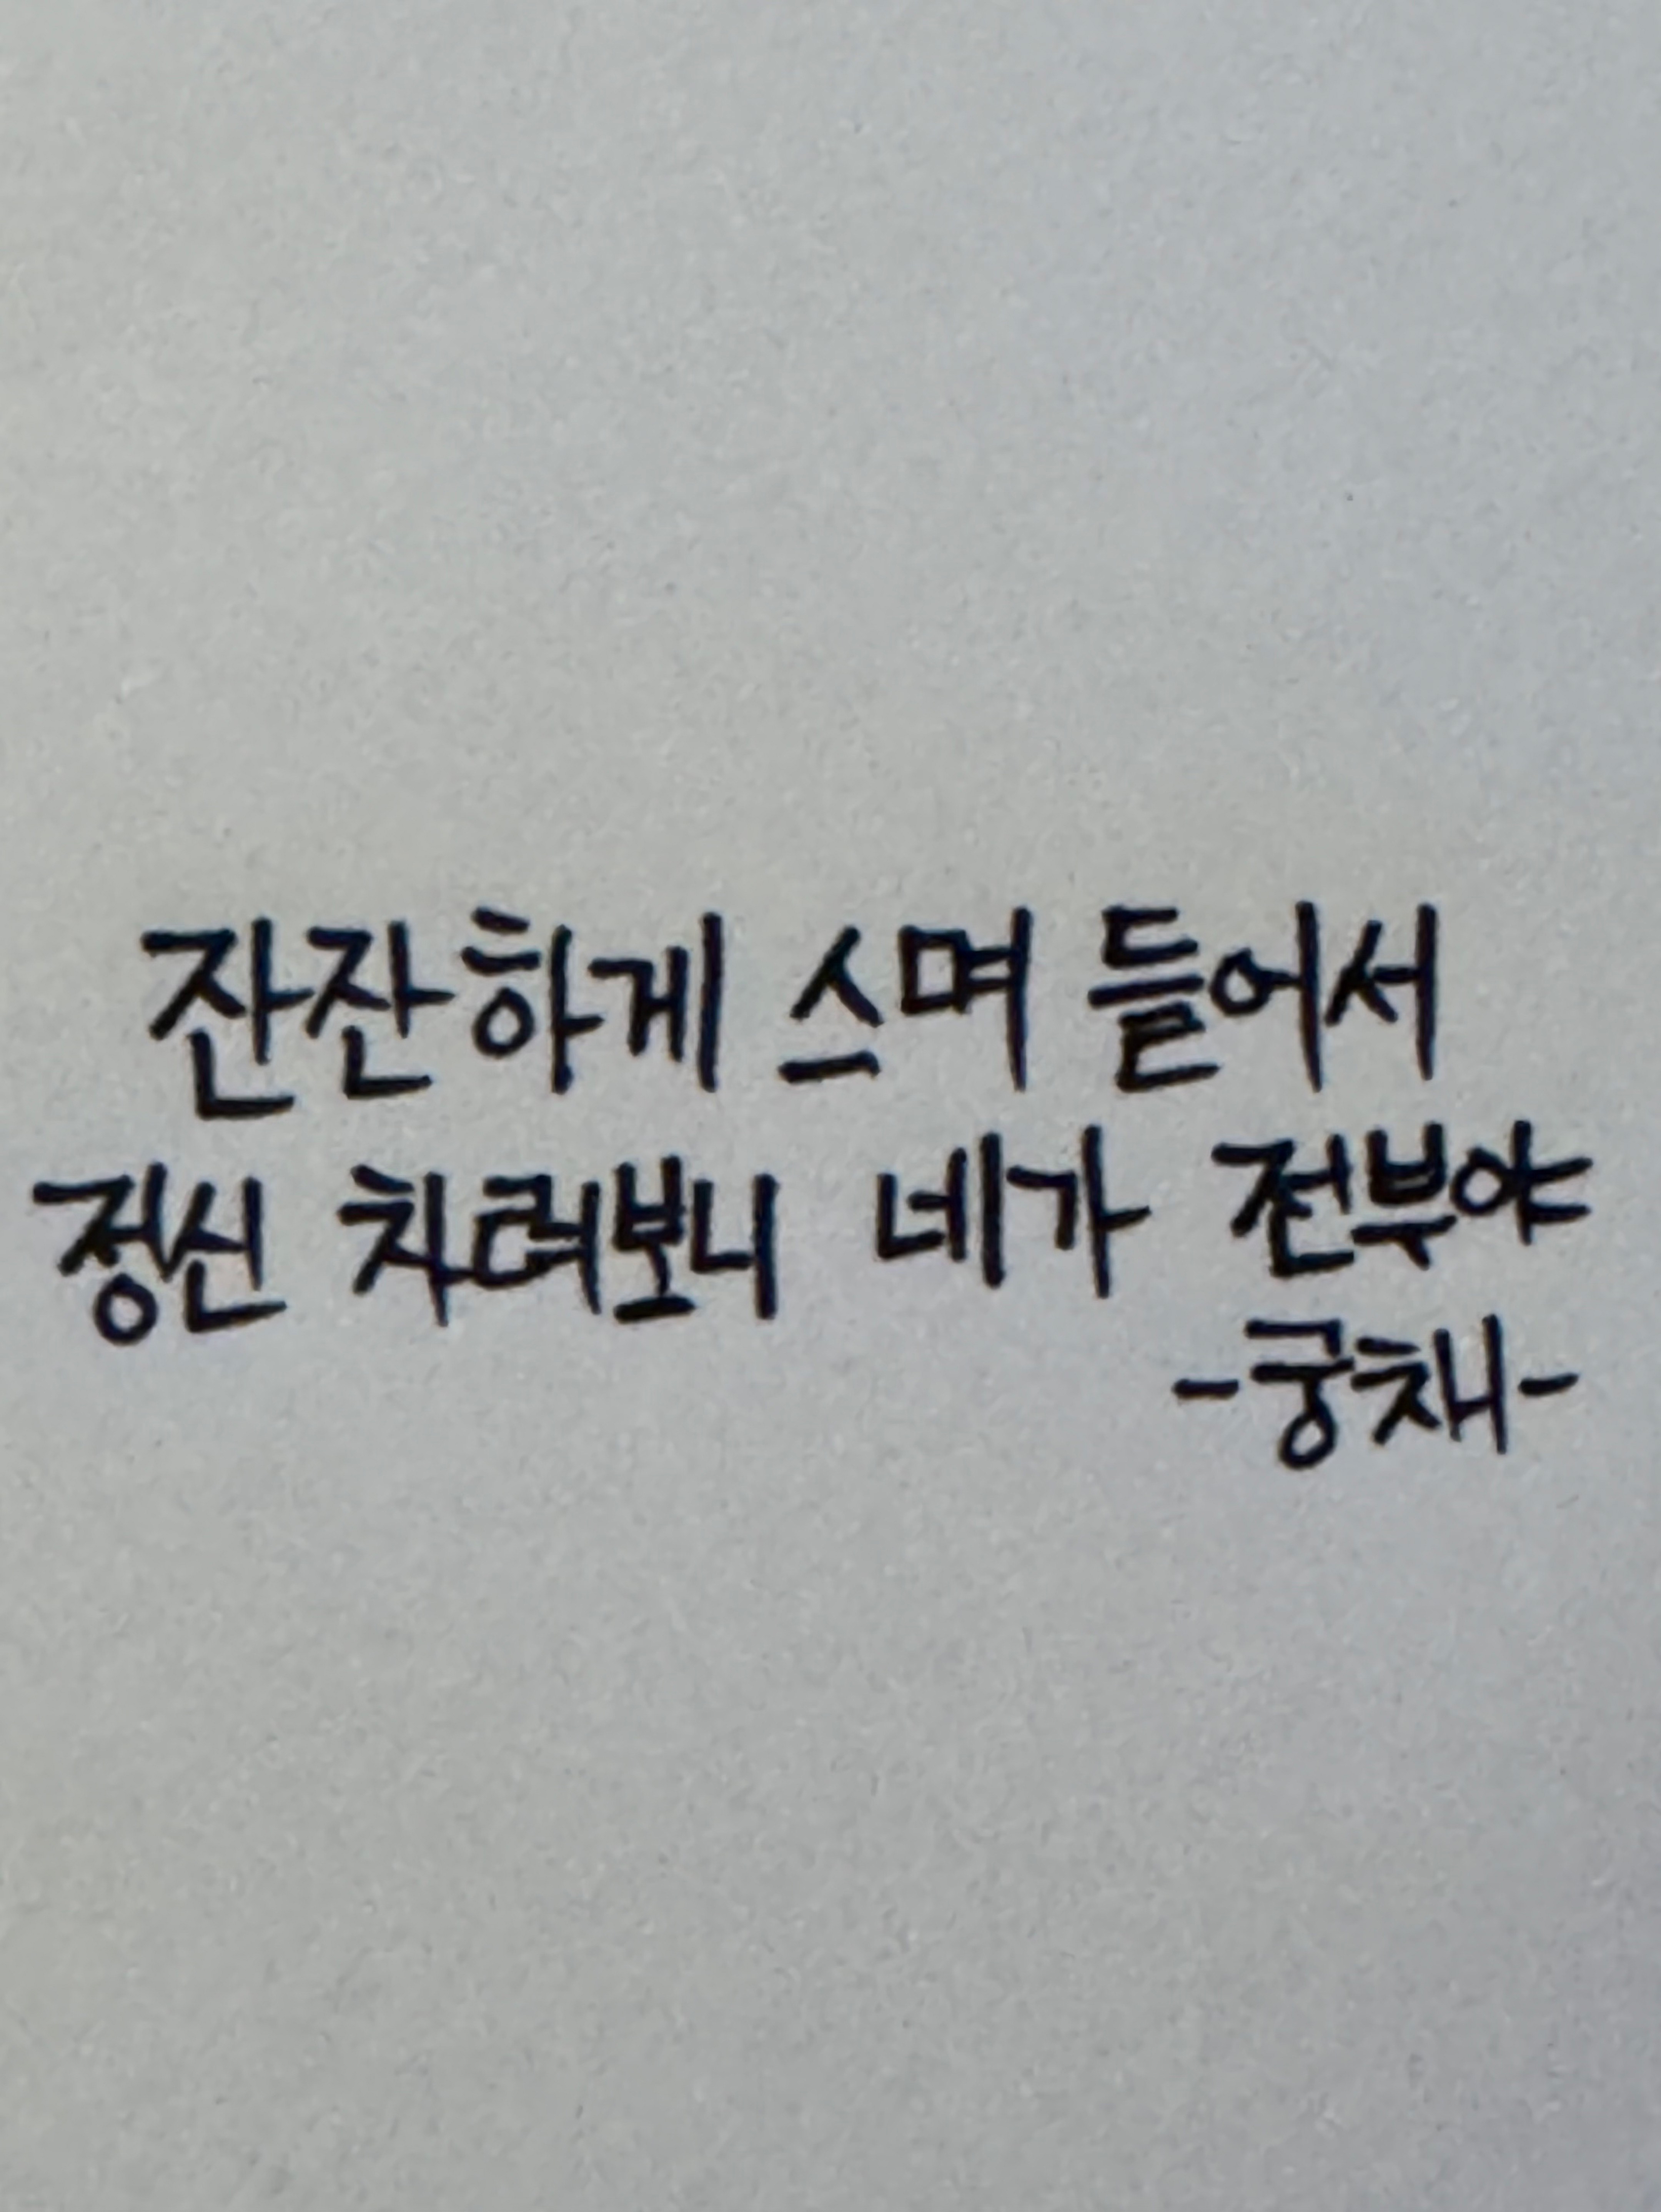 잔잔하게 스며 들어서
정신 차려보니 네가 전부야
-궁채-